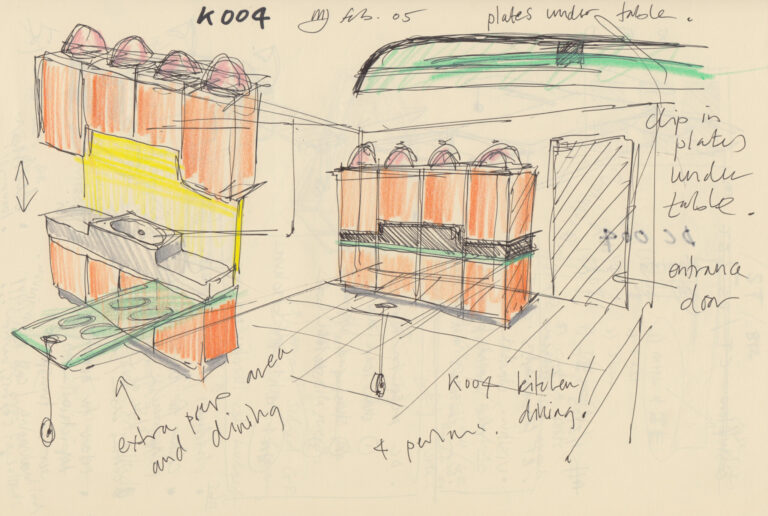 K004 feb. 05
plates under table.
clip in
plates
under
table.
entrance
door
extra prep area
and dining
K004 kitchen/
dining.
4 persons.